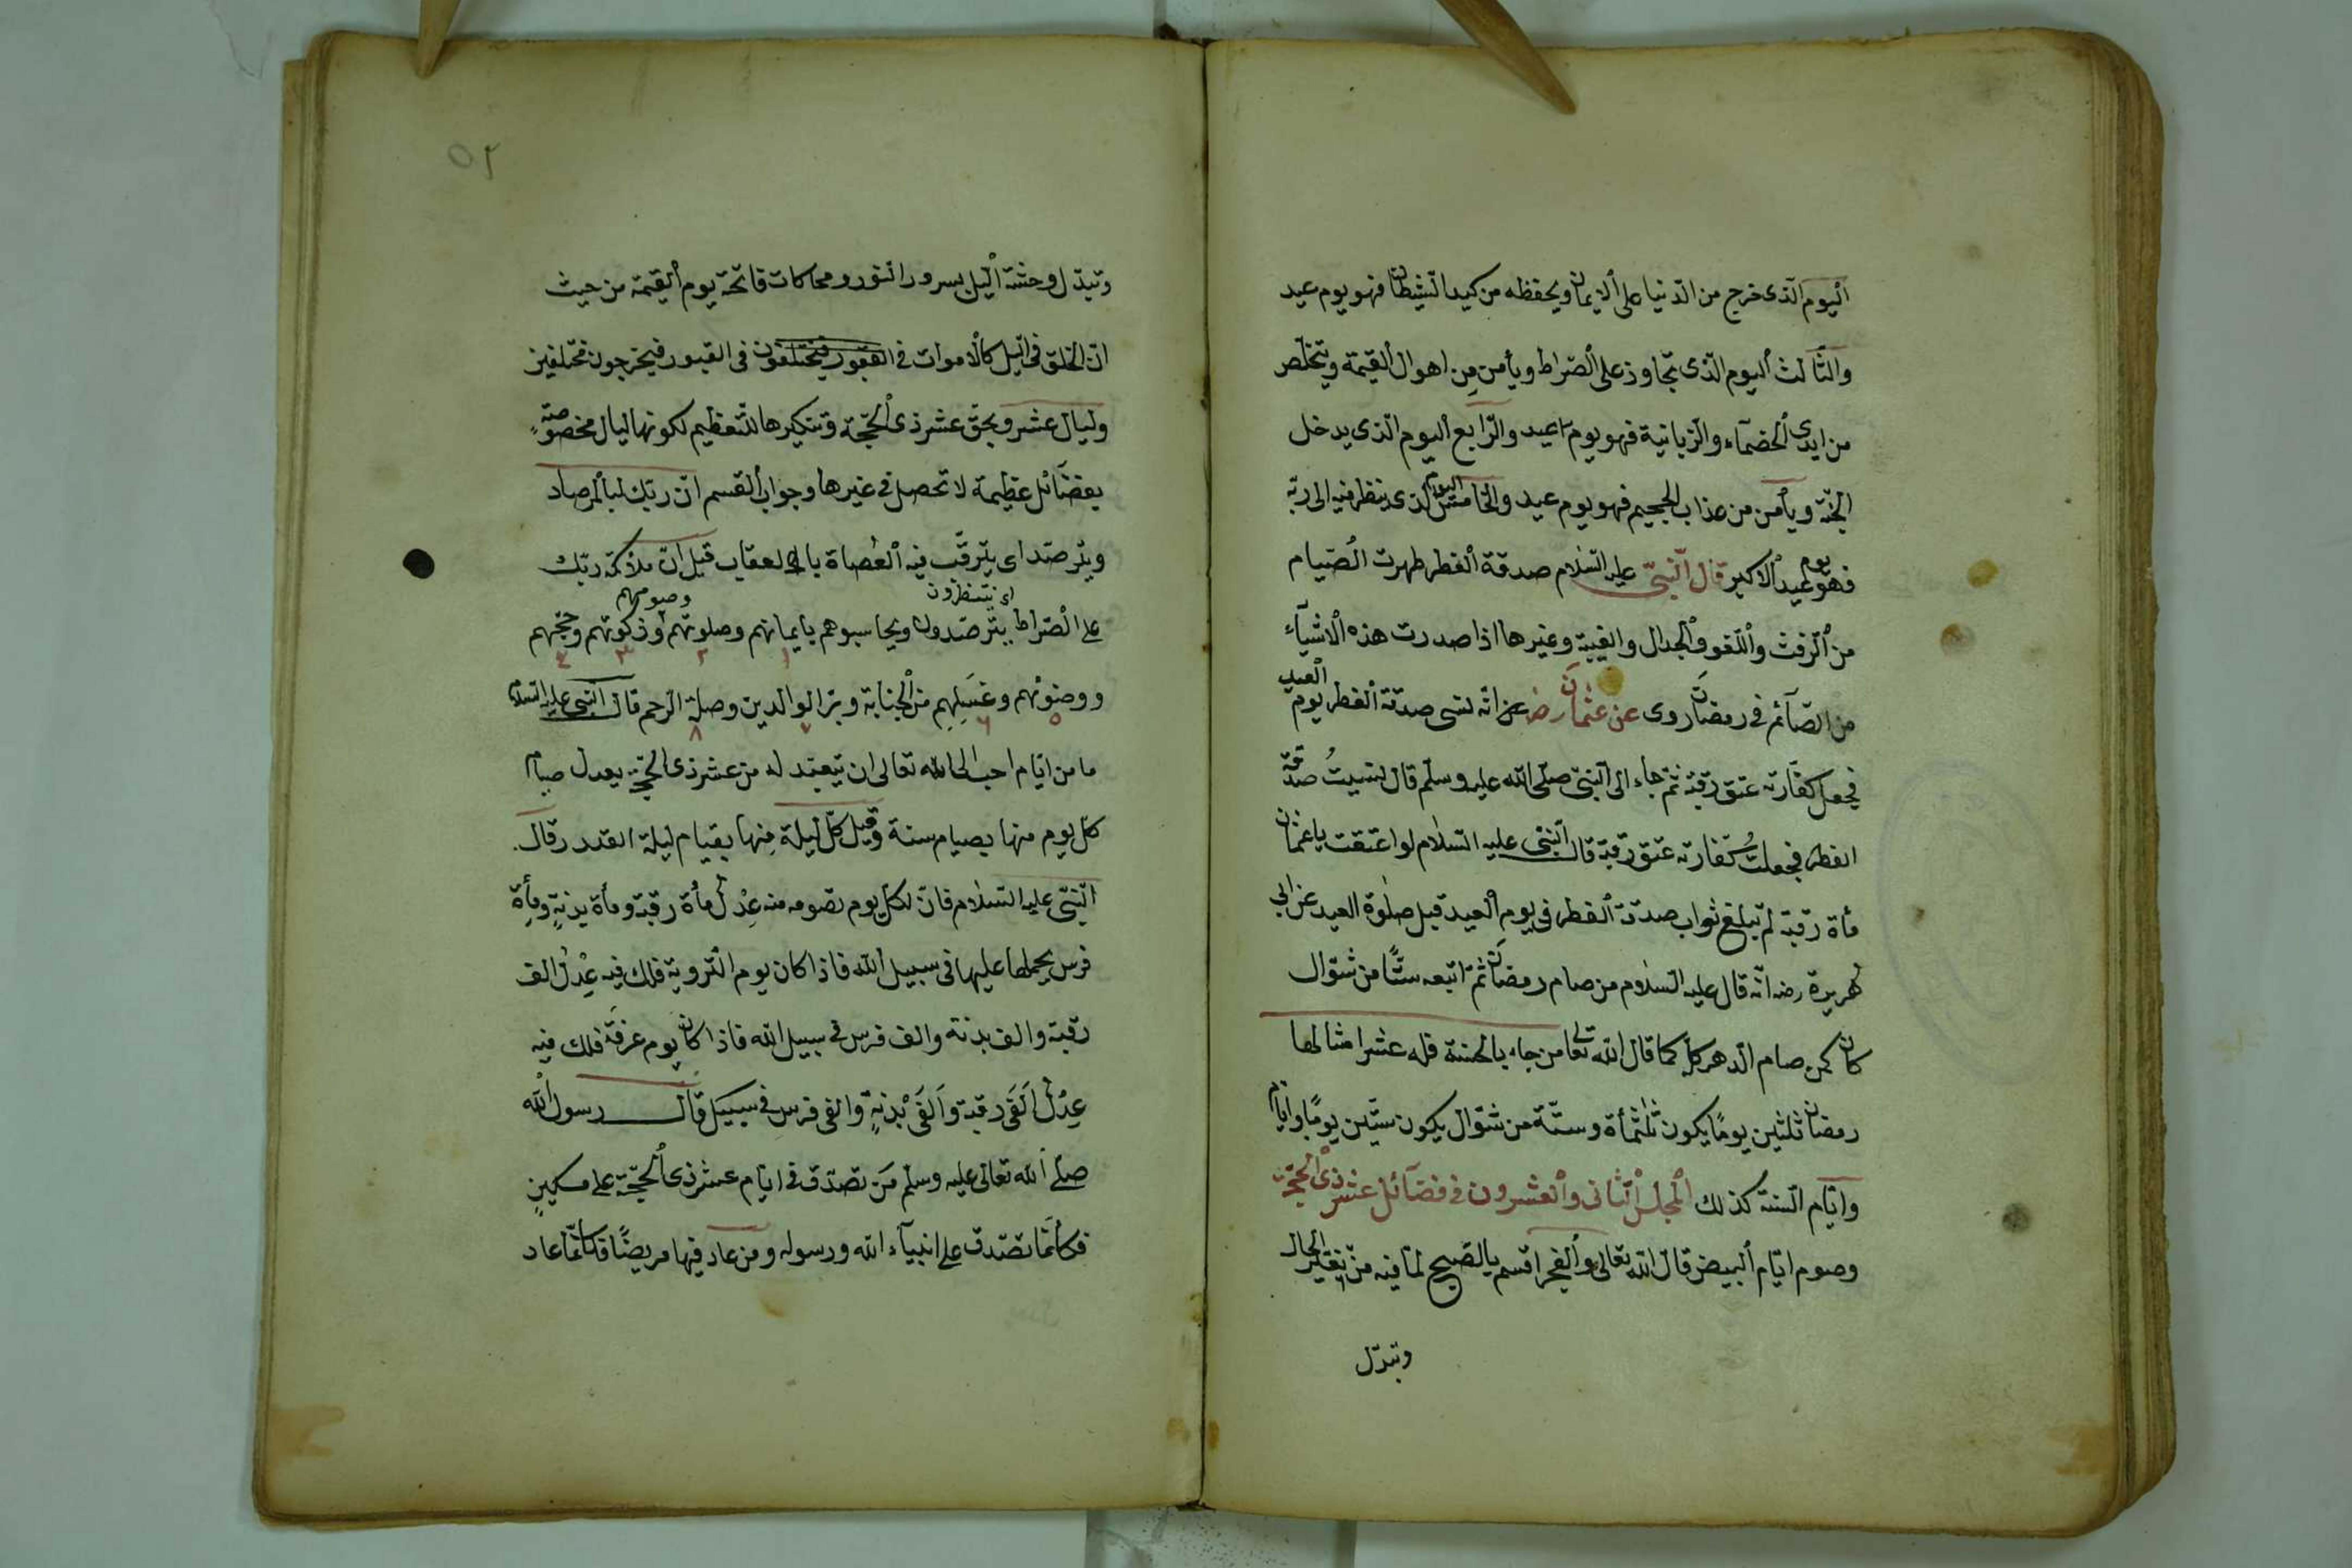 اليوم الّذى خرج من الدّنيا على الايمان ويحفظه من كيد الشّيطان فهو يوم عيد
والثّالث اليوم الّذى تجاوز على الصّراط ويأمن من اهوال القيمة ويتخلّص
من ايدى الخصمآء والزّبانية فهو يوم عيد والرّابع اليوم الّذى يدخل
الجنّة ويأمن من عذاب الجحيم فهو يوم عيد والخامس اليوم الّذى ينظر فيه الى ربّه
فهو يوم عيد الاكبر قال النّبىّ عليه السّلام صدقة الفطر طهرت الصّيام
من الرّفث واللّغو والجدال والغيبة وغيرها اذا صدرت هذه الاشيآء
من الصّآئم فى رمضان روى عن عثمان رض انّه نسى صدقة الفطر يوم العيد
فجعل كفّارته عتق رقبة ثمّ جاء الى النّبىّ صلّى اللّه عليه وسلّم قال نسيتُ صدقة
الفطر فجعلتُ كفارته عتق رقبة قال النّبىّ عليه السّلام لو اعتقت يا عثمان
مأة رقبة لم تبلغ ثواب صدقة الفطر فى يوم العيد قبل صلوة العيد عن ابى
هريرة رضه انّه قال عليه السّلام من صام رمضان ثمّ اتبعه ستًّا من شوّال
كان كمن صام الدّهر كلّه كما قال اللّه تعالى من جاء بالحسنة فله عشر امثالها
رمضان ثلثين يومًا يكون ثلثمأة وستّة من شوّال يكون ستّين يومًا وايّام
وايّام السّنة كذلك المجلس الثّانى والعشرون فى فضآئل عشر ذى الحجّة
وصوم ايّام البيض قال اللّه تعالى والفجر اقسم بالصّبح لما فيه من تغيّر الحال
وتبدّل
٥٢
وتبدّل وحشة اللّيل بسرور النّور ومحاكات قائمة يوم القيمة من حيث
انّ الخلق فى اللّيل كالاموات فى القبور فيختلفون فى القبور فيخرجون مختلفين
وليال عشر وبحقّ عشر ذى الحجّة وتنكيرها للتّعظيم لكونها ليال مخصوصةٍ
بفضآئل عظيمة لا تحصل فى غيرها وجواب القسم انّ ربّك لبالمرصاد
ويترصّد اى يترقّب فيه العُصاة بالعقاب قيل انّ ملائكة ربّك
اى ينتظرون وصومهم
على الصّراط يترصّدون ويحاسبوهم بايمانهم وصلوتهم وزكوتهم وحجّهم
١ ٢ ٣ ٤
ووضوئهم وغسلهم من الجنابة وبرّ الوالدين وصلة الرّحم قال النّبى عليه السّلام
٥ ٦ ٧ ٨
ما من ايّام احبّ الى اللّه تعالى ان يتعبّد له من عشر ذى الحجّة يعدل صيام
كلّ يوم منها بصيام سنة وقيل كلّ ليلة منها بقيام ليلة القدر وقال
النّبىّ عليه السّلام فانّ لكلّ يوم تصومه منه عِدْل مأة رقبة ومأة بدنةٍ ومأة
فرس يحملها عليها فى سبيل اللّه فاذا كان يوم التّروية فلك فيه عِدْل الف
رقبة والف بدنة والف فرس فى سبيل اللّه فاذا كان يوم عرفة فلك فيه
عِدْل اَلفَى رقبة واَلفَى بدنةٍ والفى فرس فى سبيل قال رسول اللّه
صلّى اللّه تعالى عليه وسلّم مَن تصدّق فى ايّام عشر ذى الحجّة على مسكينٍ
فكأنّما تصدّق على انبيآء اللّه ورسوله ومن عاد فيها مريضًا فكأنّما عاد